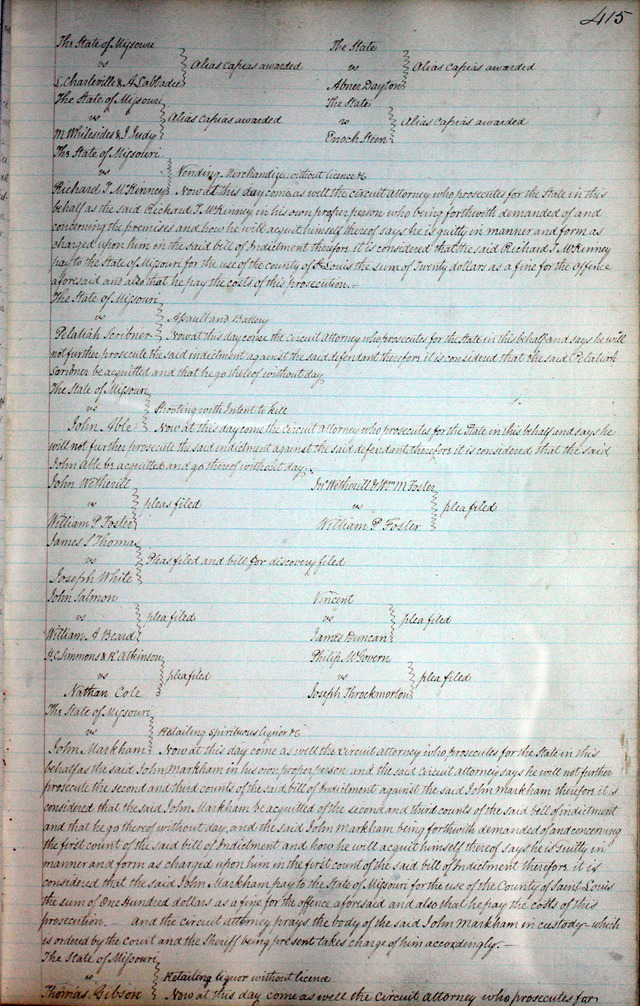 415
The State of Missouri
vs } Alias capias awarded
C. Charleville & A Labbadee
The State
vs } Alias capias awarded
Abner Dayton
The State of Missouri
vs } Alias capias awarded
M Whitesides & J. Judy
The State
vs } Alias capias awarded
Enoch Steen
The State of Missouri
vs } Vending Merchandize without licence &c
Richard T. McKenney } Now at this day come as well the circuit attorney who prosecutes for the State in this
behalf as the said Richard T. McKinney in his own proper person who being forthwith demanded of and
concerning the premises and how he will acquit himself thereof says he is guilty in manner and form as
charged upon him in the said bill of Indictment therefore it is considered that the said Richard T. McKinney
pay to the State of Missouri for the use of the county of St Louis the sum of Twenty dollars as a fine for the Offence
aforesaid and also that he pay the costs of this prosecution. –
The State of Missouri
vs } Assault and Battery
Pelatiah Scribner } Now at this day come the Circuit Attorney who prosecutes for the State in this behalf and says he will
not further prosecute the said indictment against the said defendant therefore it is considered that the said Pelatiah
Scribner be acquitted and that he go thereof without day
The State of Missouri
vs } Shooting with Intent to kill
John Able } Now at this day come the Circuit Attorney who prosecutes for the State in this behalf and says he
will not further prosecute the said indictment against the said defendant therefore it is considered that the said
John Able be acquitted and go thereof without day.
John Witherill
vs } pleas filed
William P. Foster
Jno Witherill & Wm M Foster
vs } plea filed
William P. Foster
James S Thomas
vs } Pleas filed and bill for discovery filed
Joseph White
John Salmon
vs } plea filed
William A Beard
Vincent
vs } plea filed
James Duncan
H C Simmons & R Atkinson
vs } plea filed
Nathan Cole
Philip McGovern
vs } plea filed
Joseph Throckmorton
The State of Missouri
vs } Retailing spirituous liquor &c
John Markham } Now at this day come as well the circuit attorney who prosecutes for the State in this
behalf as the said John Markham in his own proper person and the said circuit attorney says he will not further
prosecute the second and third counts of the said bill of indictment against the said John Markham therefore it is
considered that the said John Markham be acquitted of the second and third counts of the said bill of indictment
and that he go thereof without day, and the said John Markham being forthwith demanded of and concerning
the first count of the said bill of Indictment and how he will acquit himself thereof says he is Guilty in
manner and form as charged upon him in the first count of the said bill of Indictment therefore it is
considered that the said John Markham pay to the State of Missouri for the use of the County of Saint Louis
the sum of One hundred dollars as a fine for the offence aforesaid and also that he pay the costs of this
prosecution. — And the circuit attorney prays the body of the said John Markham in custody which
is ordered by the Court and the Sheriff being present takes charge of him accordingly. —
The State of Missouri
vs } Retailing liquor without licence
Thomas Gibson } Now at this day come as well the Circuit attorney who prosecutes for